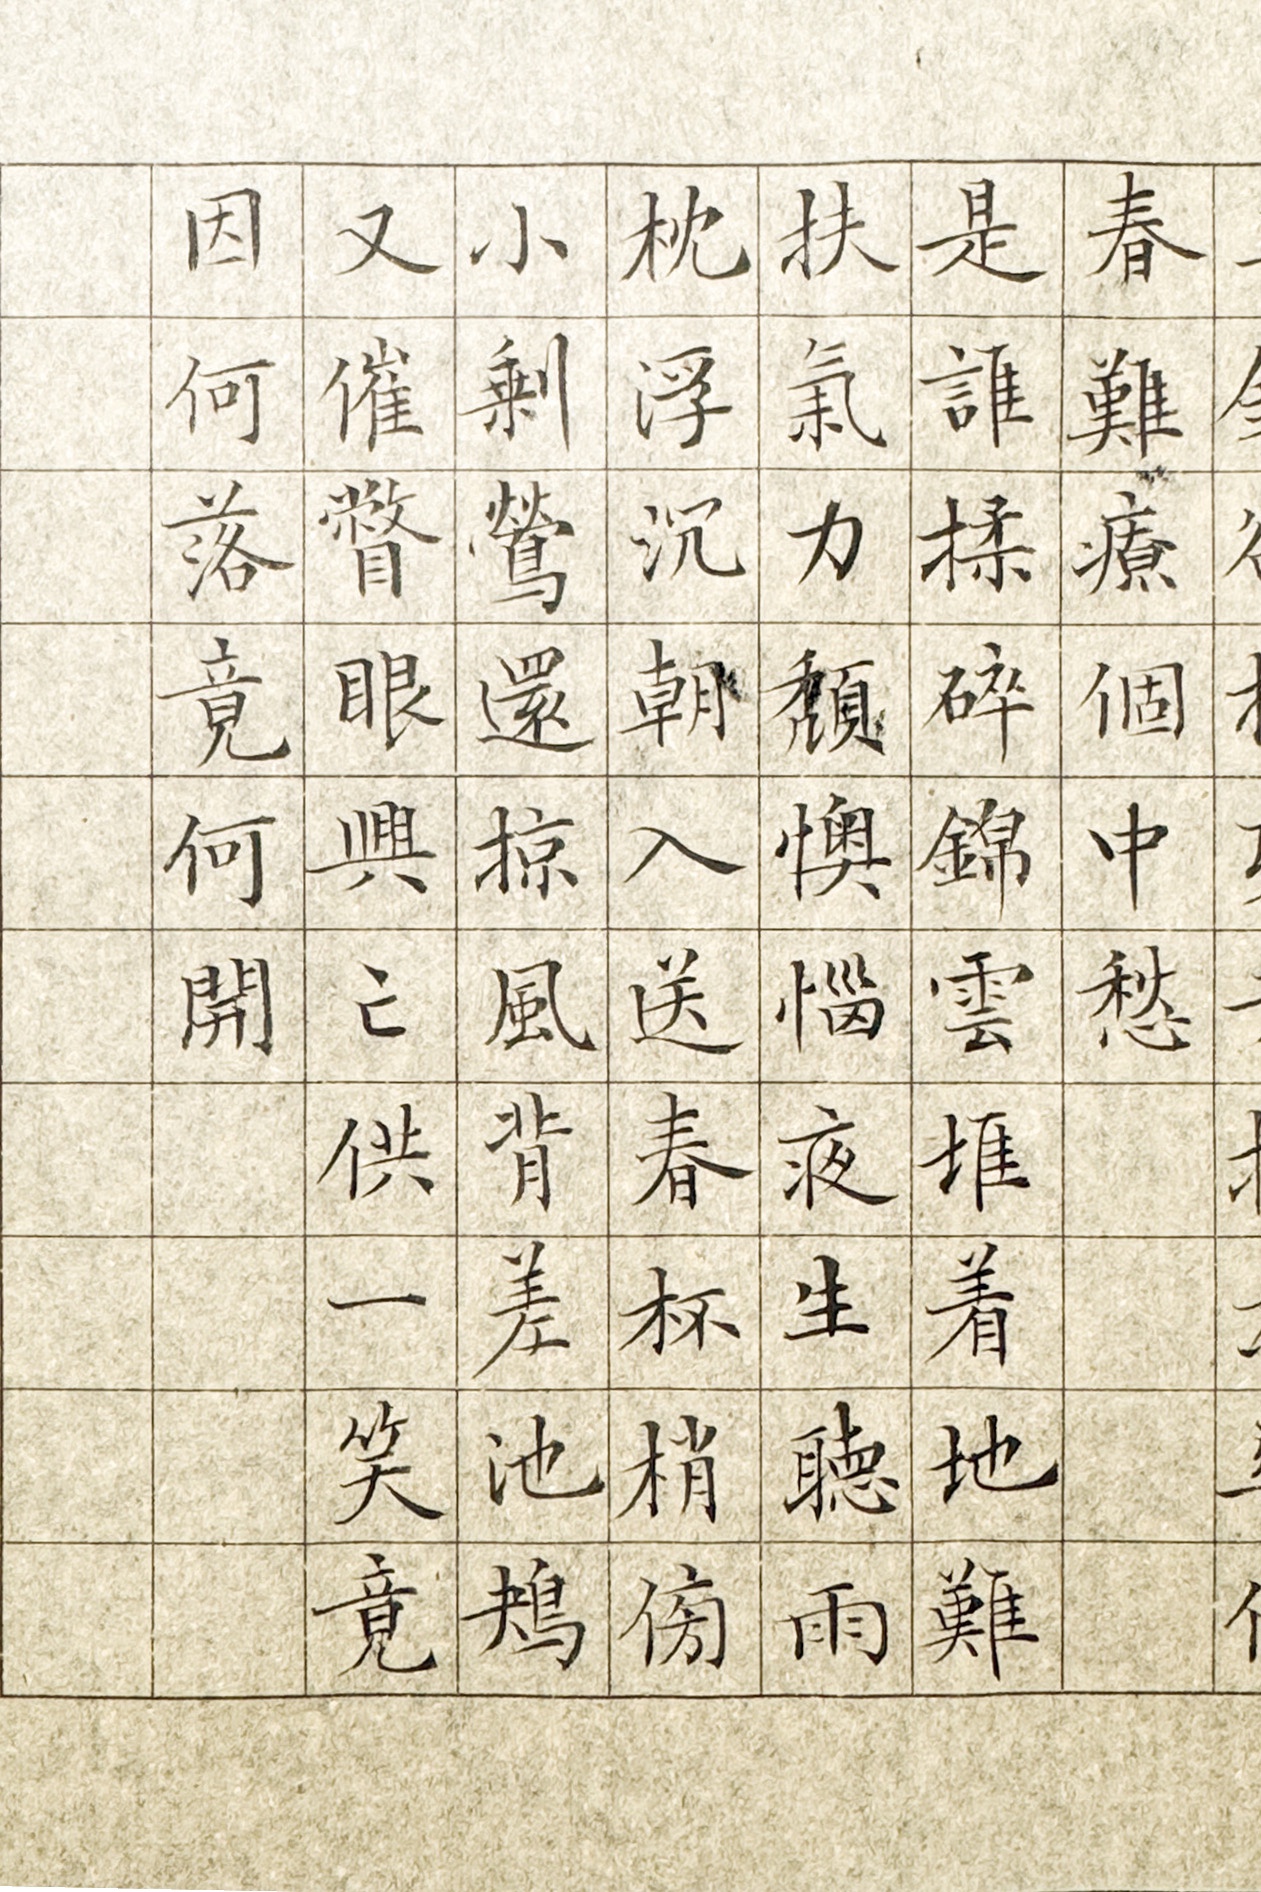 春難療個中愁
是誰揉碎錦雲堆着地難
扶氣力頹懊惱夜生聽雨
枕浮沉朝入送春杯梢傍
小剩鶯還掠風背差池鴂
又催瞥眼興亡供一笑竟
因何落竟何開